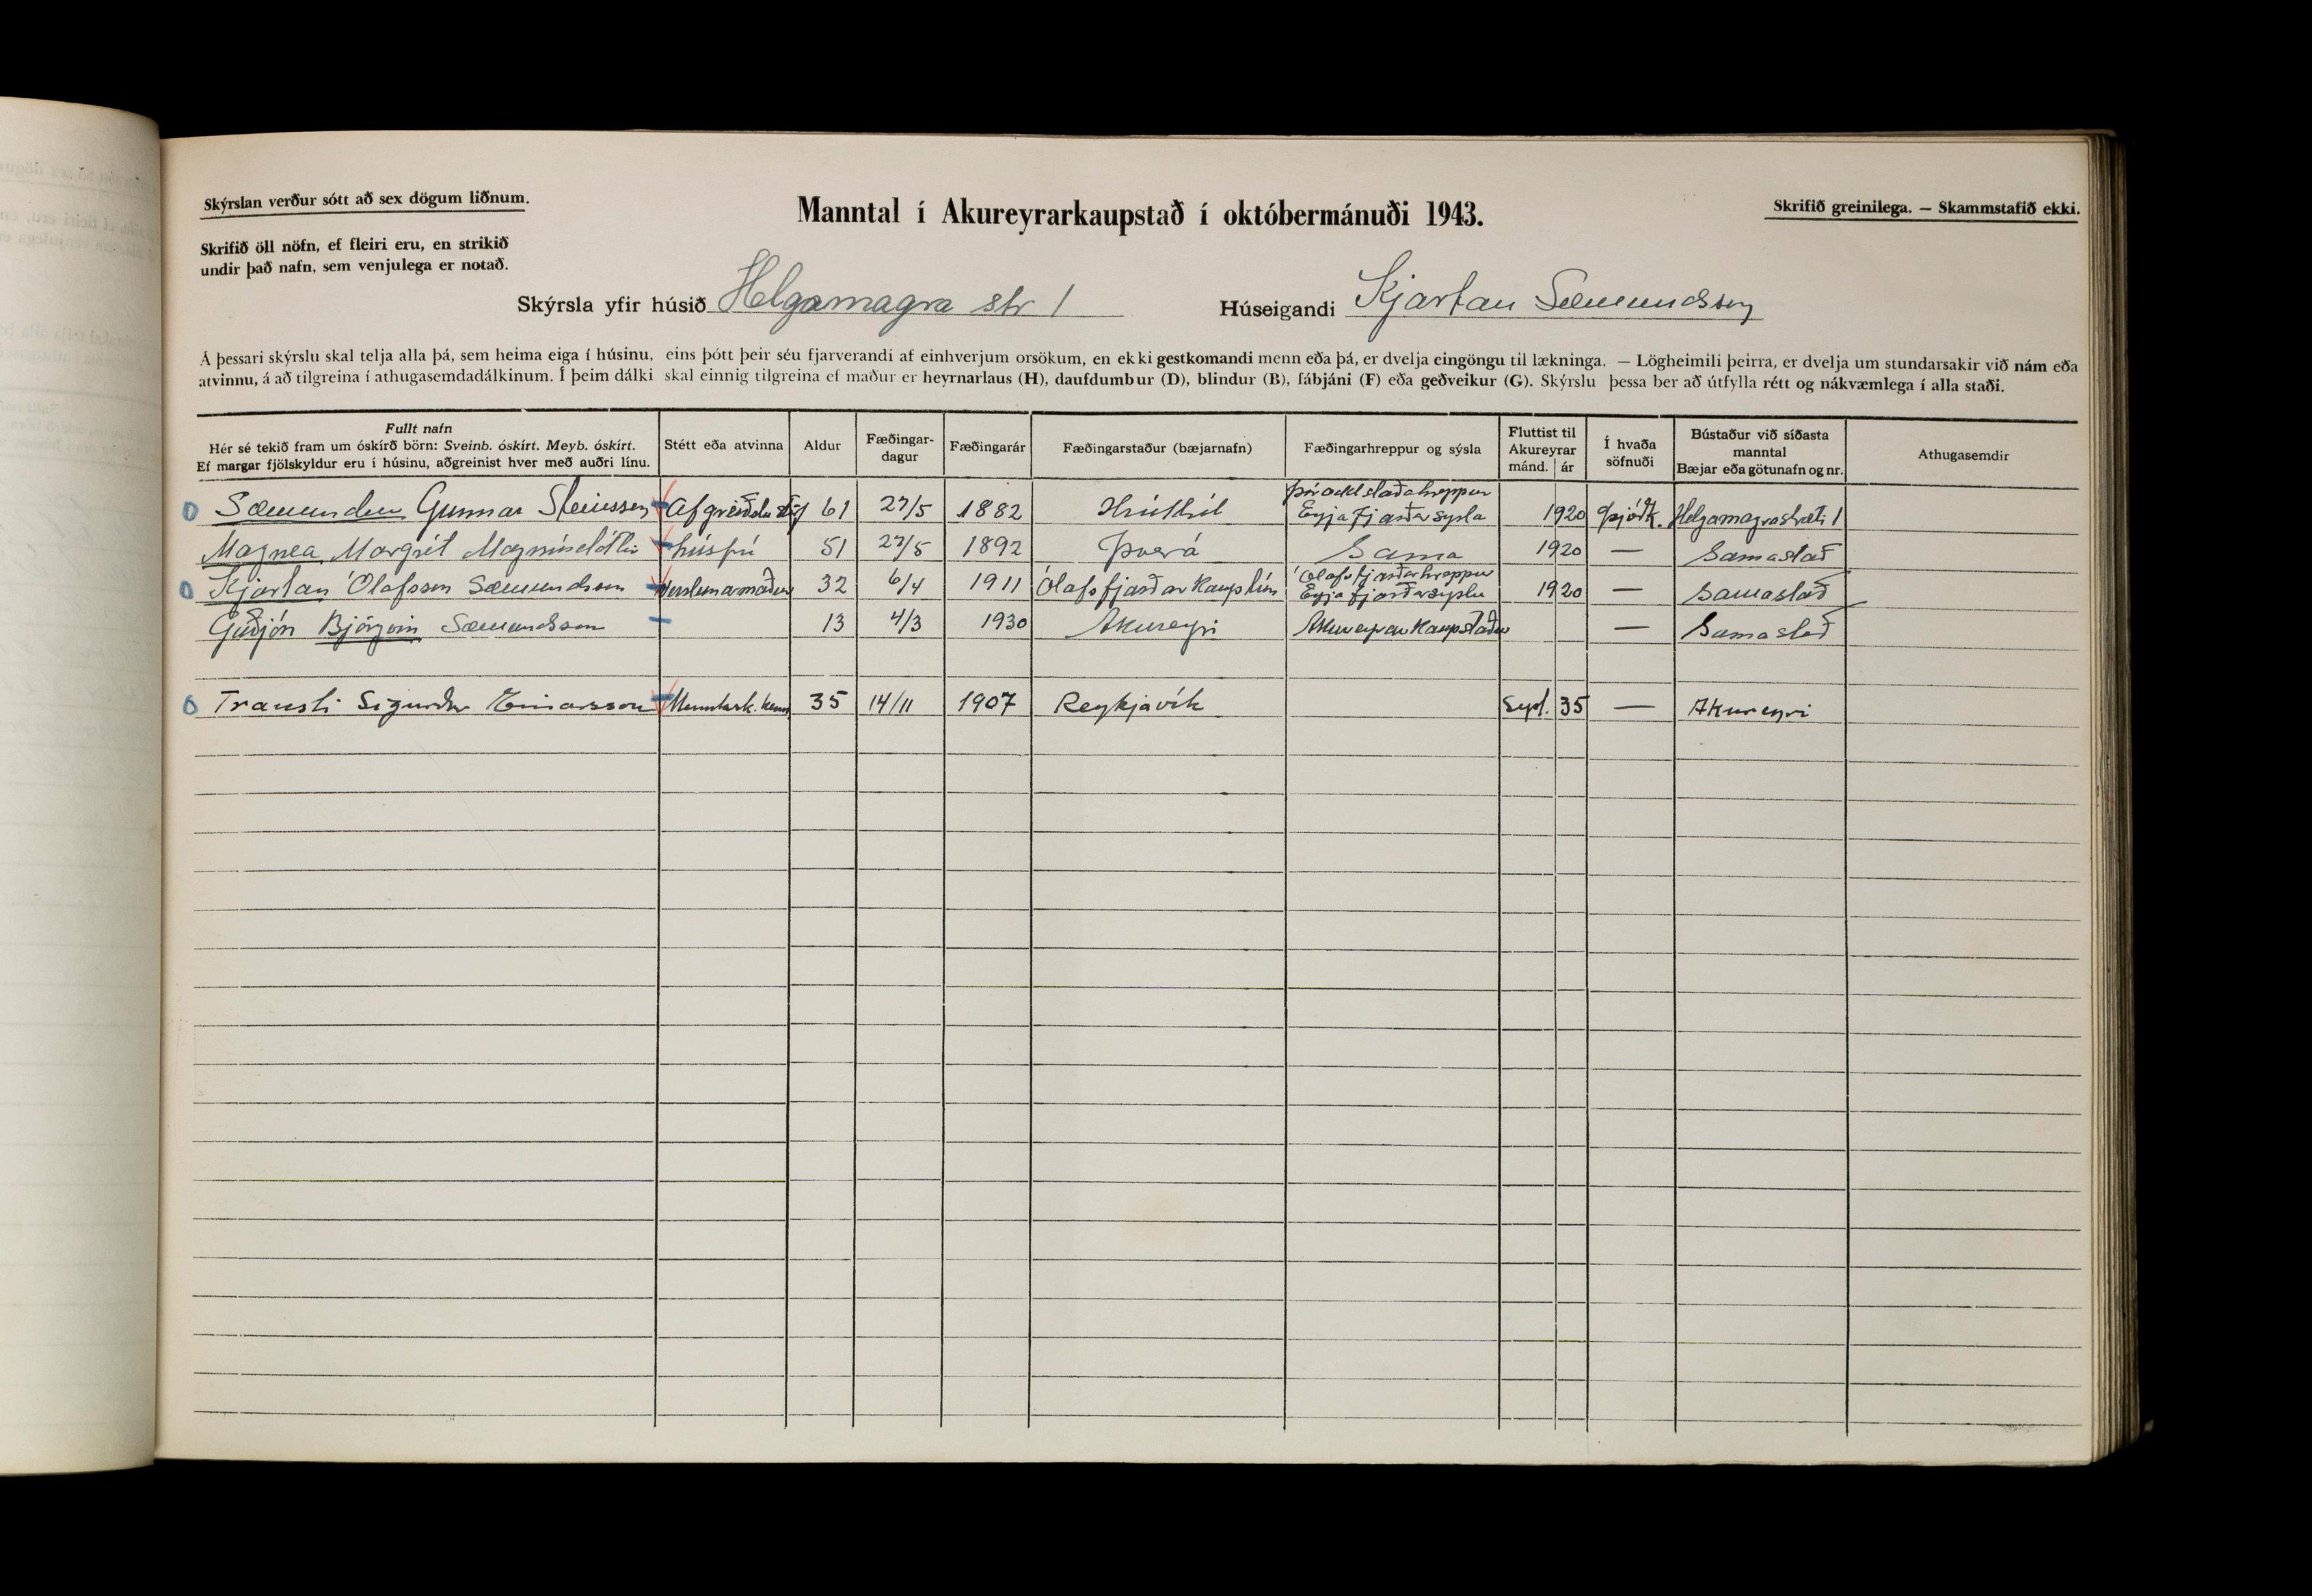 Skýrslan verður sótt að sex dögum liðnum.
Manntal í Akureyrarkaupstað í októbermánuði 1943.
Skrifið greinilega. — Skammstafið ekki.
Skrifið öll nöfn, ef fleiri eru, en strikið
undir það nafn, sem venjulega er notað.
Skýrsla yfir húsið Helgamagra str 1
Húseigandi Kjartan Sæmundsson
Á þessari skýrslu skal telja alla þá, sem heima eiga í húsinu, eins þótt þeir séu fjarverandi af einhverjum orsökum, en ekki gestkomandi menn eða þá, er dvelja eingöngu til lækninga. — Lögheimili þeirra, er dvelja um stundarsakir við nám eða
atvinnu, á að tilgreina í athugasemdadálkinum. Í þeim dálki skal einnig tilgreina ef maður er heyrnarlaus (H), daufdumbur (D), blindur (B), fábjáni (F) eða geðveikur (G). Skýrslu þessa ber að útfylla rétt og nákvæmlega í alla staði.
Fullt nafn
Hér sé tekið fram um óskírð börn: Sveinb. óskírt. Meyb. óskírt.
Ef margar fjölskyldur eru í húsinu, aðgreinist hver með auðri línu.
Stétt eða atvinna
Aldur
Fæðingar-
dagur
Fæðingarár
Fæðingarstaður (bæjarnafn)
Fæðingarhreppur og sýsla
Fluttist til
Akureyrar
mánd. ár
Í hvaða
söfnuði
Bústaður við síðasta
manntal
Bæjar eða götunafn og nr.
Athugasemdir
Sæmundur Gunnar Steinsson 61 27/5 1882 Eyjafjarðarsýsla 1920 Þjóðk. Helgamagrastræti 1
Magnea Margrét Magnúsdóttir húsfrú 51 27/5 1892 Þverá Sama 1920 — Samastað
Kjartan Ólafsson Sæmundsson Verslunarmaður 32 6/4 1911 Ólafsfjarðarkauptún Ólafsfjarðarhreppur Eyjafjarðarsýslu 1920 — Samastað
Guðjón Björgvin Sæmundsson 13 4/3 1930 Akureyri Akureyrarkaupstaður — Samastað
Trausti Sigurður Einarsson Menntask. kenn 35 14/11 1907 Reykjavík Sept. 35 — Akureyri